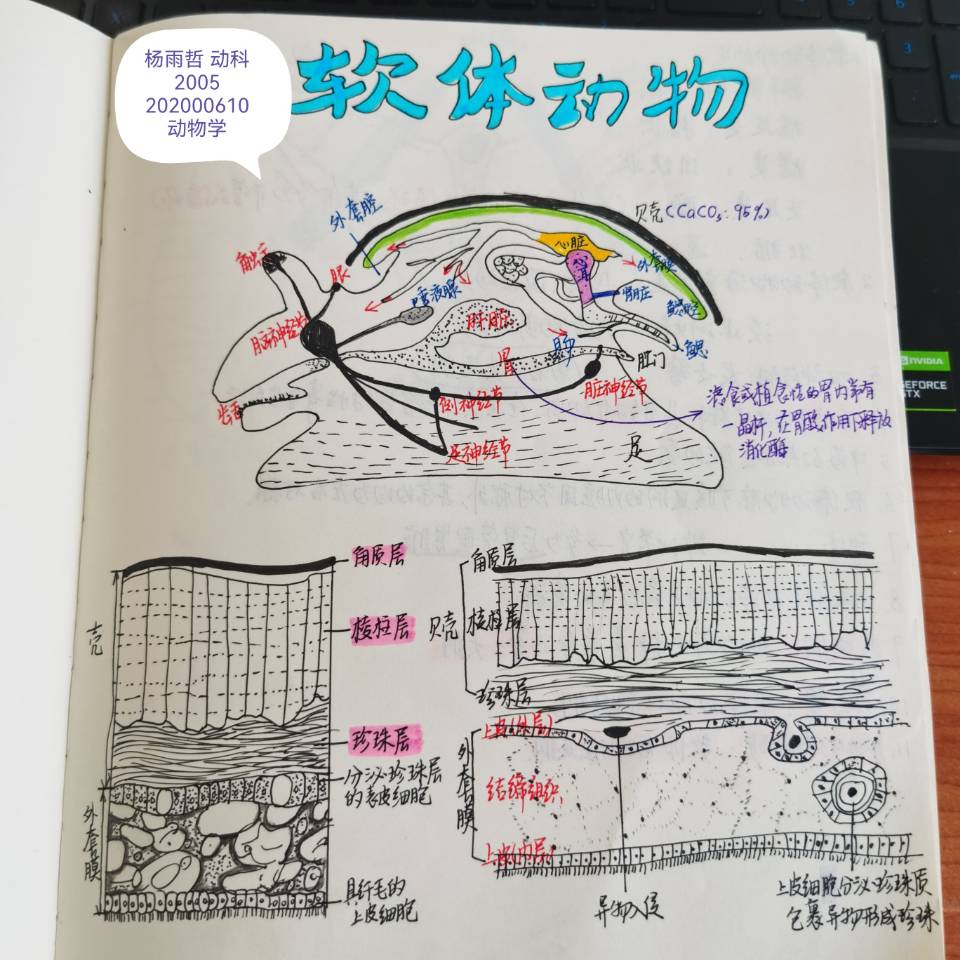 杨雨哲 动科
2005
202000610
动物学
软体动物
外套腔
贝壳(CaCO₃:95%)
触角
眼
心脏
外套膜
唾液腺
肾脏
鳃腔
脑神经节
肝脏
肠
鳃
胃
肛门
齿舌
侧神经节
脏神经节
足神经节
足
滤食或植食性的胃内常有
一晶杆,在胃酸作用下释放
消化酶
角质层
角质层
壳
棱柱层
贝壳
棱柱层
珍珠层
珍珠层
上皮(外层)
分泌珍珠层
的表皮细胞
外套膜
结缔组织
外套膜
上皮(内层)
具纤毛的
上皮细胞
异物入侵
上皮细胞分泌珍珠质
包裹异物形成珍珠
3
NVIDIA
GEFORCE
GTX